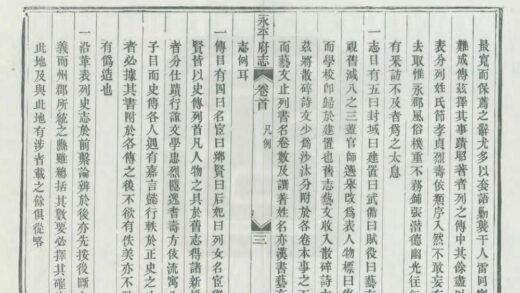 最寬而保薦之辭尤多以妄語勦襲千人雷同
難成傳茲擇其事蹟昭著者列之傳中其餘盡以
表分列姓氏節孝貞烈壽依類序入然不敢妄
去取惟永郡風俗樸重不務鋪張潛德幽光往
有采訪不及者爲之太息
一志目有五曰封域曰建置曰武備曰賦役曰藝
視舊減八之三蓋官師選舉改爲表人物標曰
而學校卽歸於建置也舊志藝文收入散碎詩
茲將散碎詩文少爲沙汰分附於各卷本事之
而藝文止列書名卷數及譔著姓名亦漢書藝
志例耳
永平府志 卷首 凡例 三
一傳目有四曰名宦曰鄉賢曰后妃曰列女名宦
賢皆以史傳列首凡人物之具於舊志得諸新
者分仕蹟行誼文學忠烈隱逸耆壽方伎流寓
子目而史傳各人遇有嘉言懿行軼於正史之
者必據其書附於各傳之後不欲有佚美亦不
有僞造也
一沿革表列史志於前繫論辨於後亦先按後斷
義而州郡所統之縣雖總括其數要必擇其確
此地及與此地有涉者載之餘俱從略